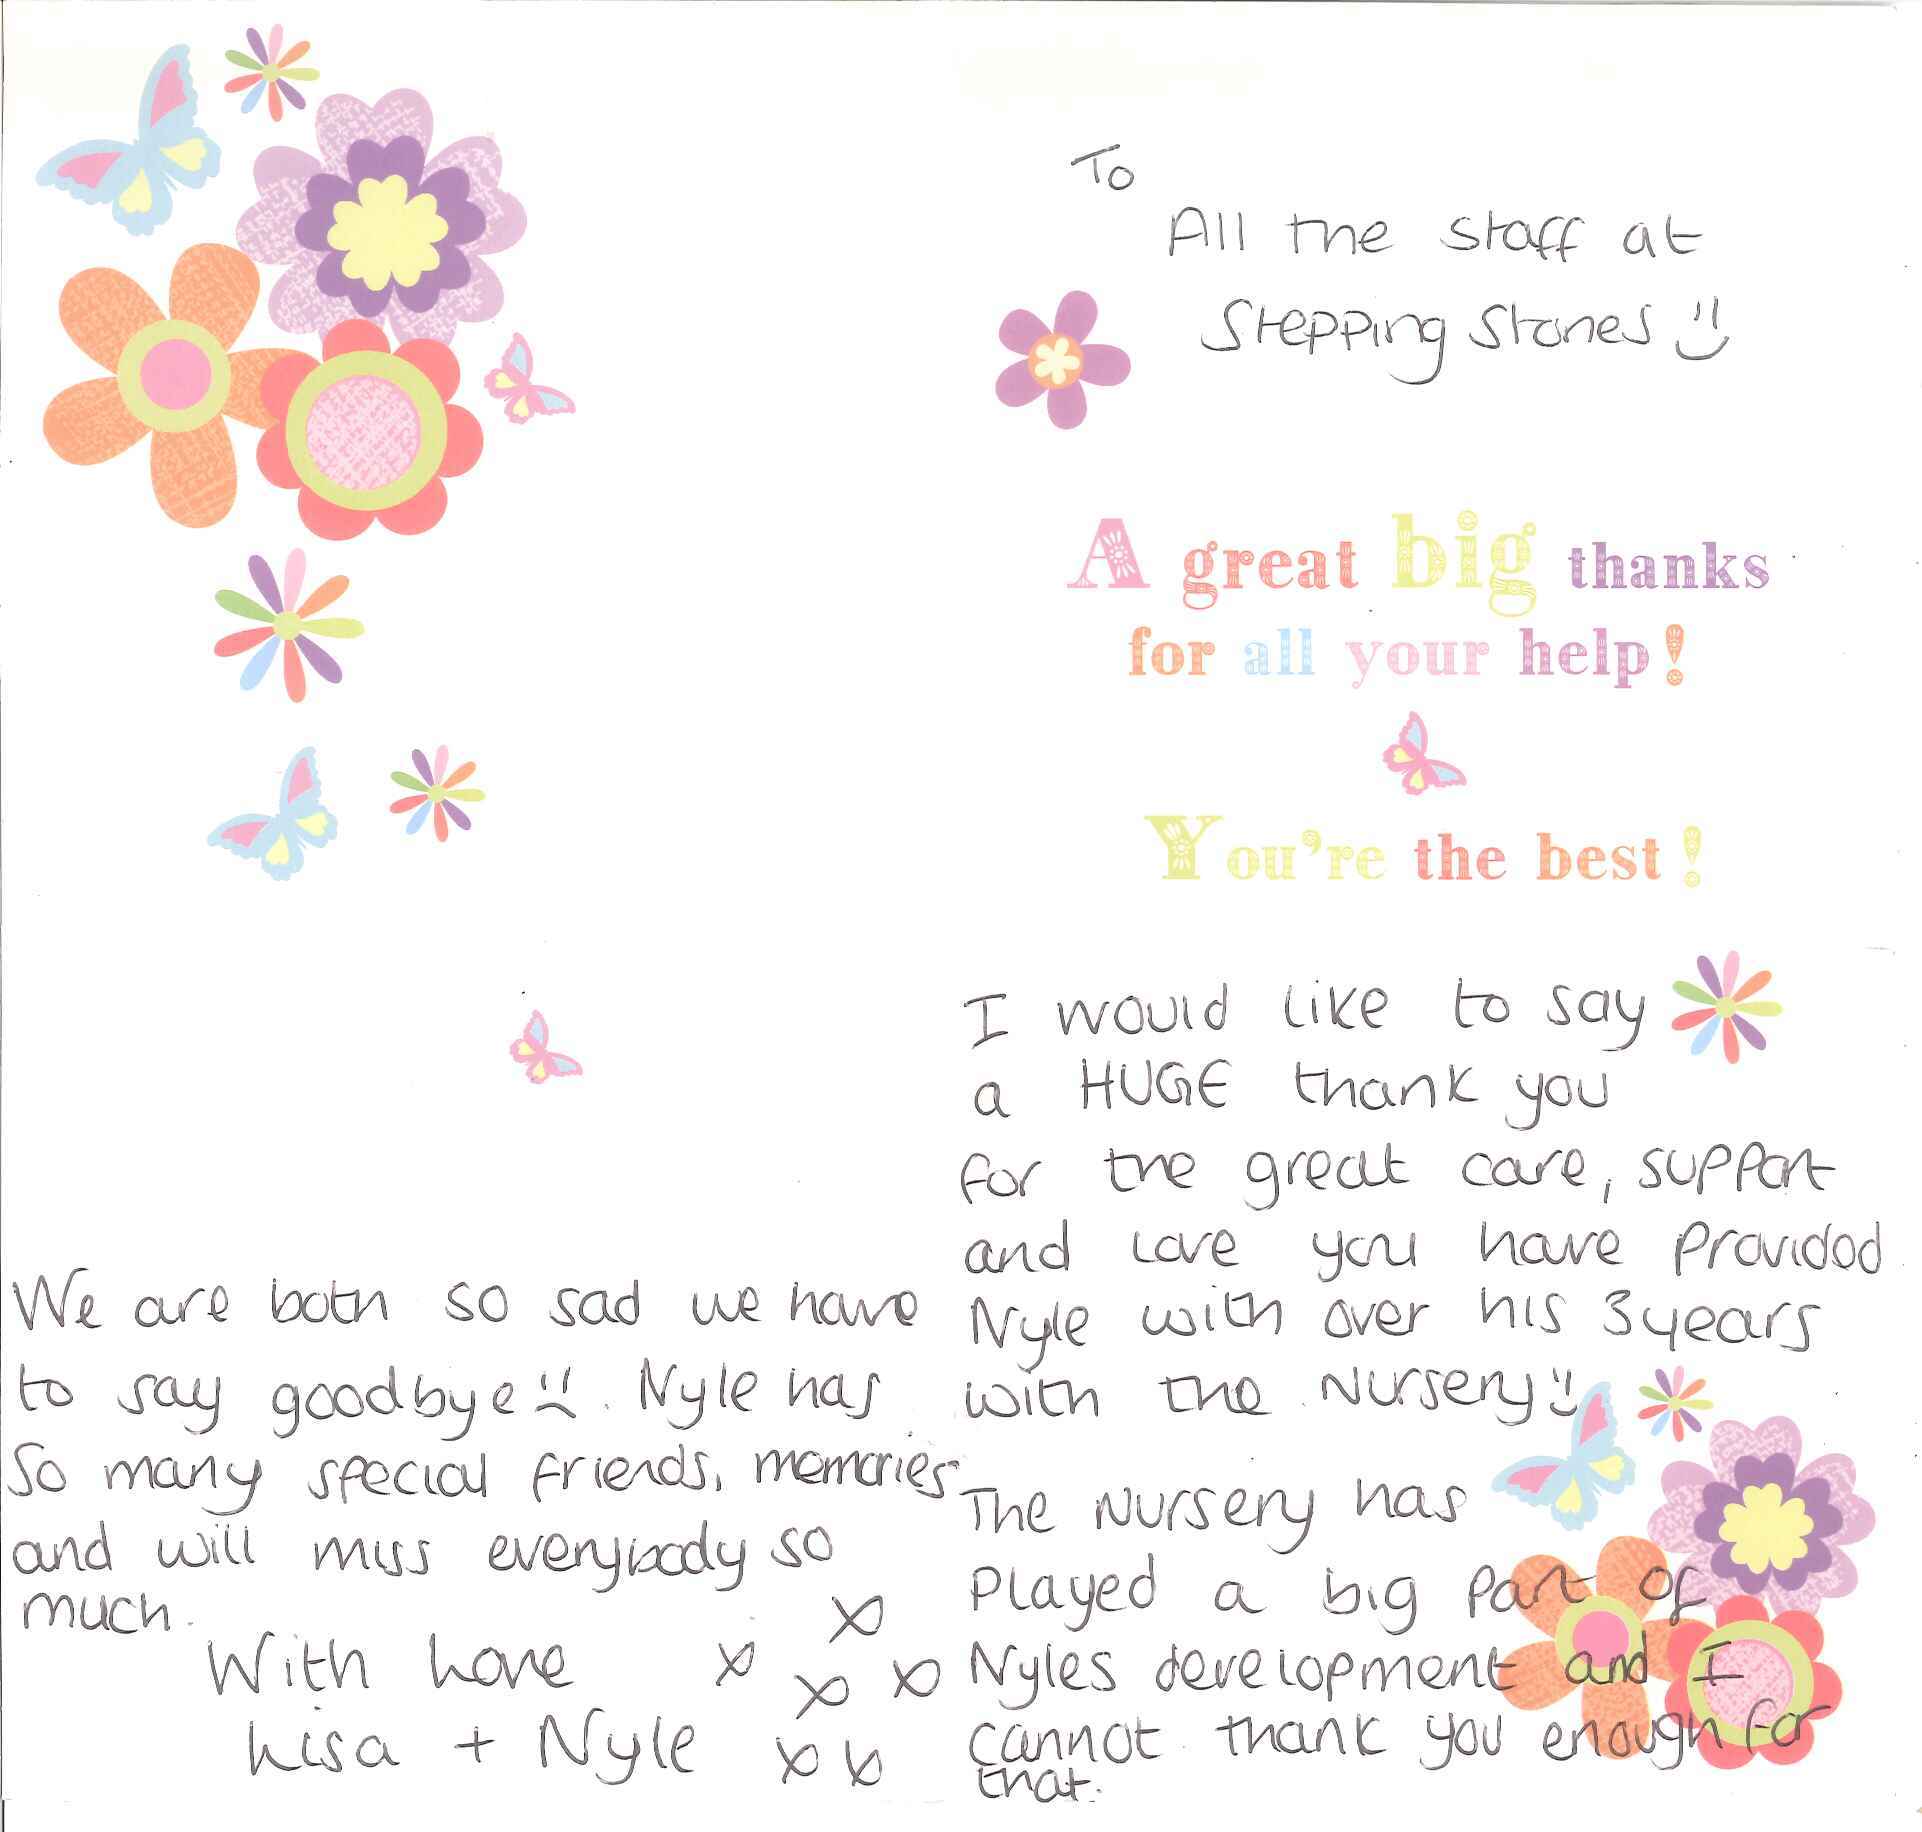 To
All the staff at
Stepping Stones
A great big thanks
for all your help!
You're the best!
I would like to say
a HUGE thank you
for the great care, support
and love you have provided
Nyle with over his 3 years
with the Nursery
The Nursery has
Played a big part of
Nyles development and I
cannot thank you enough for
that.
We are both so sad we have
to say goodbye. Nyle has
So many special friends, memories
and will miss everybody so
much.
With Love
Lisa + Nyle
x x x x x x